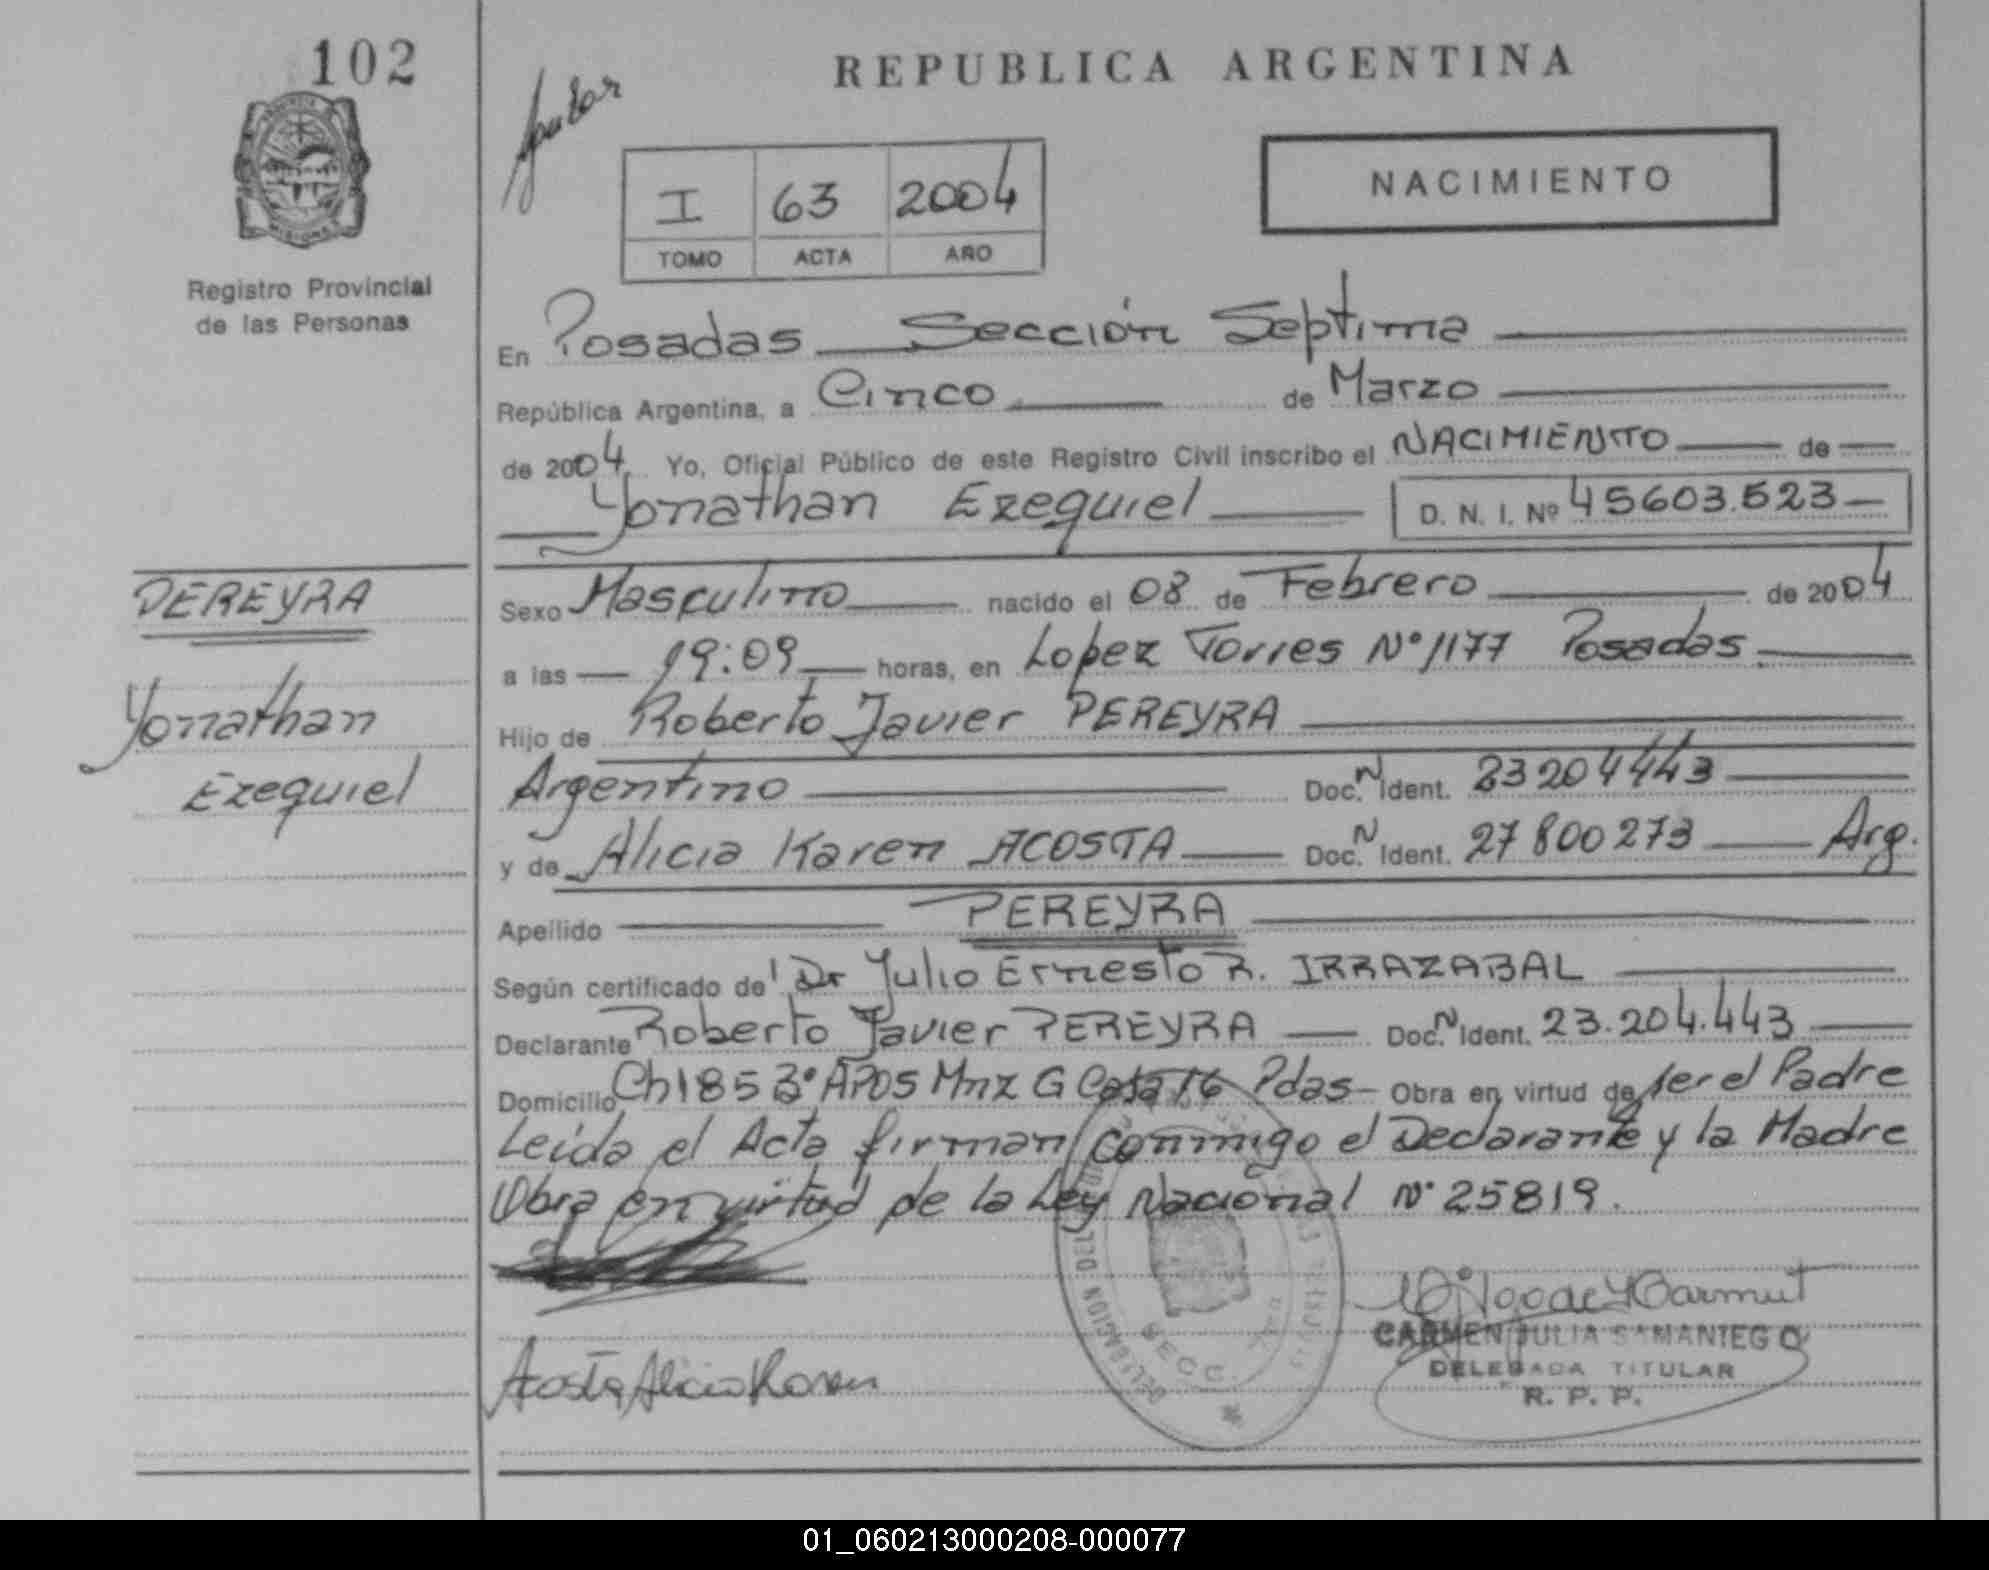 102
REPUBLICA ARGENTINA
I 63 2004
TOMO ACTA AÑO
NACIMIENTO
Registro Provincial
de las Personas
En Posadas Sección Septima
República Argentina, a Cinco de Marzo
de 2004 Yo, Oficial Público de este Registro Civil inscribo el NACIMIENTO de
Yonathan Ezequiel D. N. I. Nº 45603.523
PEREYRA
Yonathan
Ezequiel
Sexo Masculino nacido el 08 de Febrero de 2004
a las 19:09 horas, en Lopez Torres Nº 1177 Posadas.
Hijo de Roberto Javier PEREYRA
Argentino Doc. N Ident. 23204443
y de Alicia Karen ACOSTA Doc. N Ident. 27800273 Arg.
Apellido PEREYRA
Según certificado de Dr Julio Ernesto R. IRRAZABAL
Declarante Roberto Javier PEREYRA Doc. N Ident. 23.204.443
Domicilio Ch185 Mnz G Casa 16 Pdas Obra en virtud de ser el Padre
Leida el Acta firman conmigo el Declarante y la Madre
Obra en virtud de la Ley Nacional Nº 25819.
Acosta Alicia Karen
CARMEN JULIA SAMANIEGO
DELEGADA TITULAR
R. P. P.
DELEGACION DEL
SECC.
01_060213000208-000077